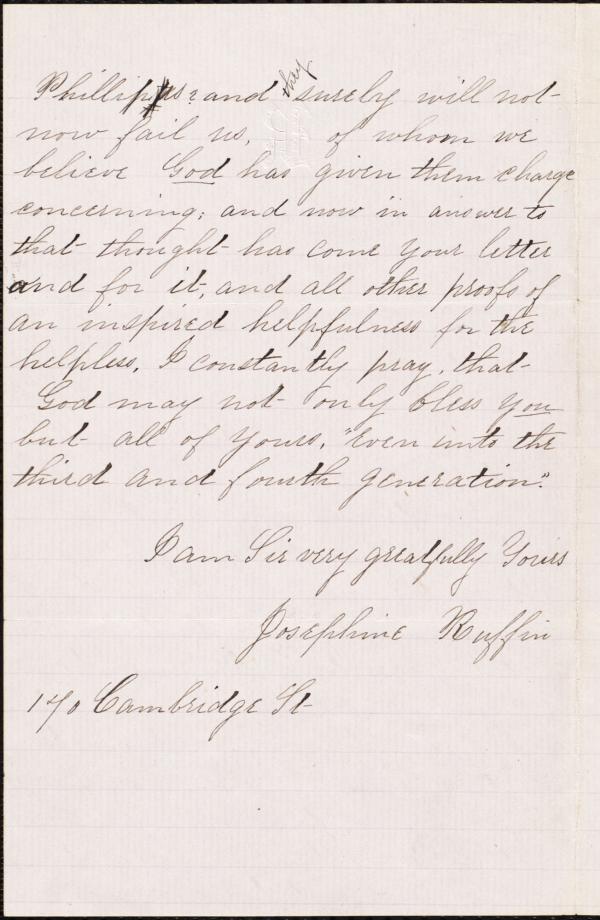 Phillips; and they surely will not
now fail us, of whom we
believe God has given them charge
concerning; and now in answer to
that thought has come your letter
and for it, and all other proofs of
an inspired helpfulness for the
helpless, I constantly pray, that
God may not only bless you
but all of yours, "Even unto the
third and fourth generation".
I am Sir very greatfully Yours
Josephine Ruffin
170 Cambridge St